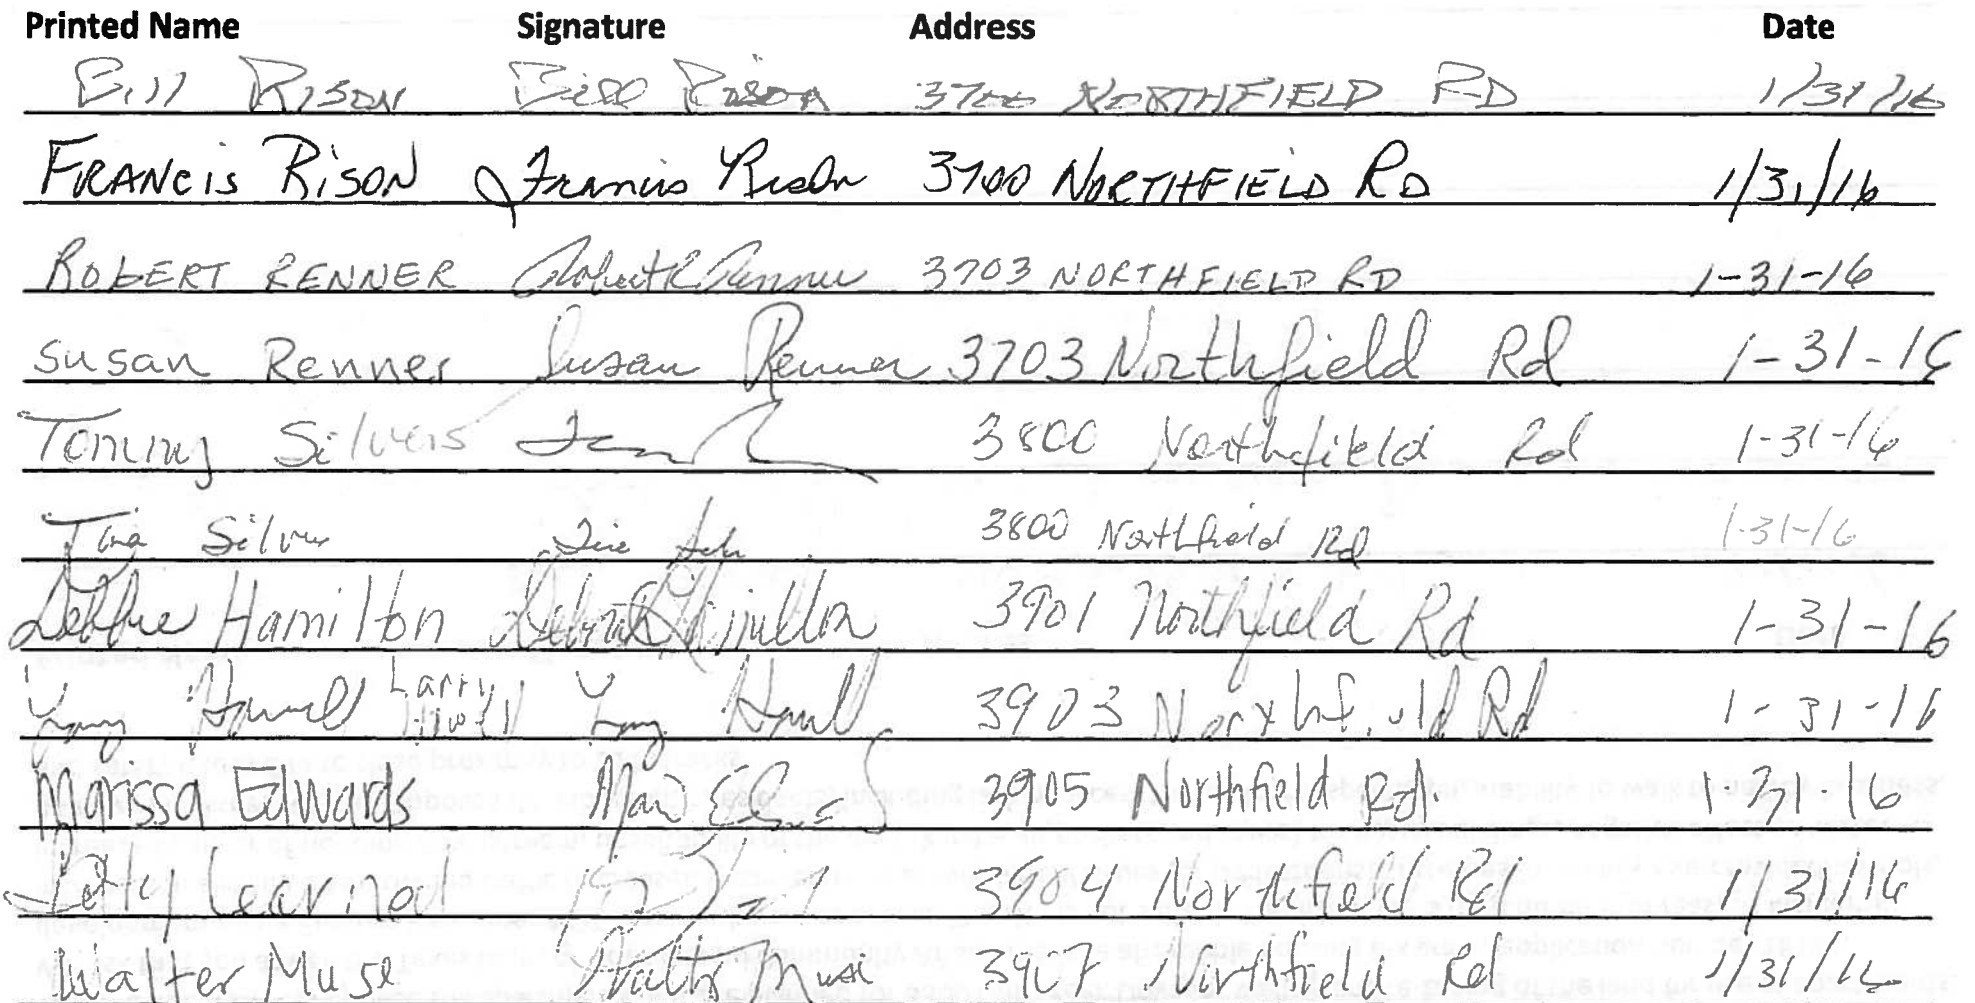 Printed Name Signature Address Date
Bill RISON Bill Rison 3700 NORTHFIELD RD 1/31/16
FRANCIS RISON Francis Rison 3700 NORTHFIELD RD 1/31/16
ROBERT RENNER Robert R Renner 3703 NORTHFIELD RD 1-31-16
Susan Renner Susan Renner 3703 Northfield Rd 1-31-16
Tommy Silvers 3800 Northfield Rd 1-31-16
Tina Silver 3800 Northfield Rd 1-31-16
Debbie Hamilton Deborah Hamilton 3901 Northfield Rd 1-31-16
Larry Howell Larry Howell Larry Howell 3903 Northfield Rd 1-31-16
Marissa Edwards 3905 Northfield Rd 1 31 16
Learned 3904 Northfield Rd 1/31/16
Walter Muse Walter Muse 3907 Northfield Rd 1/31/16